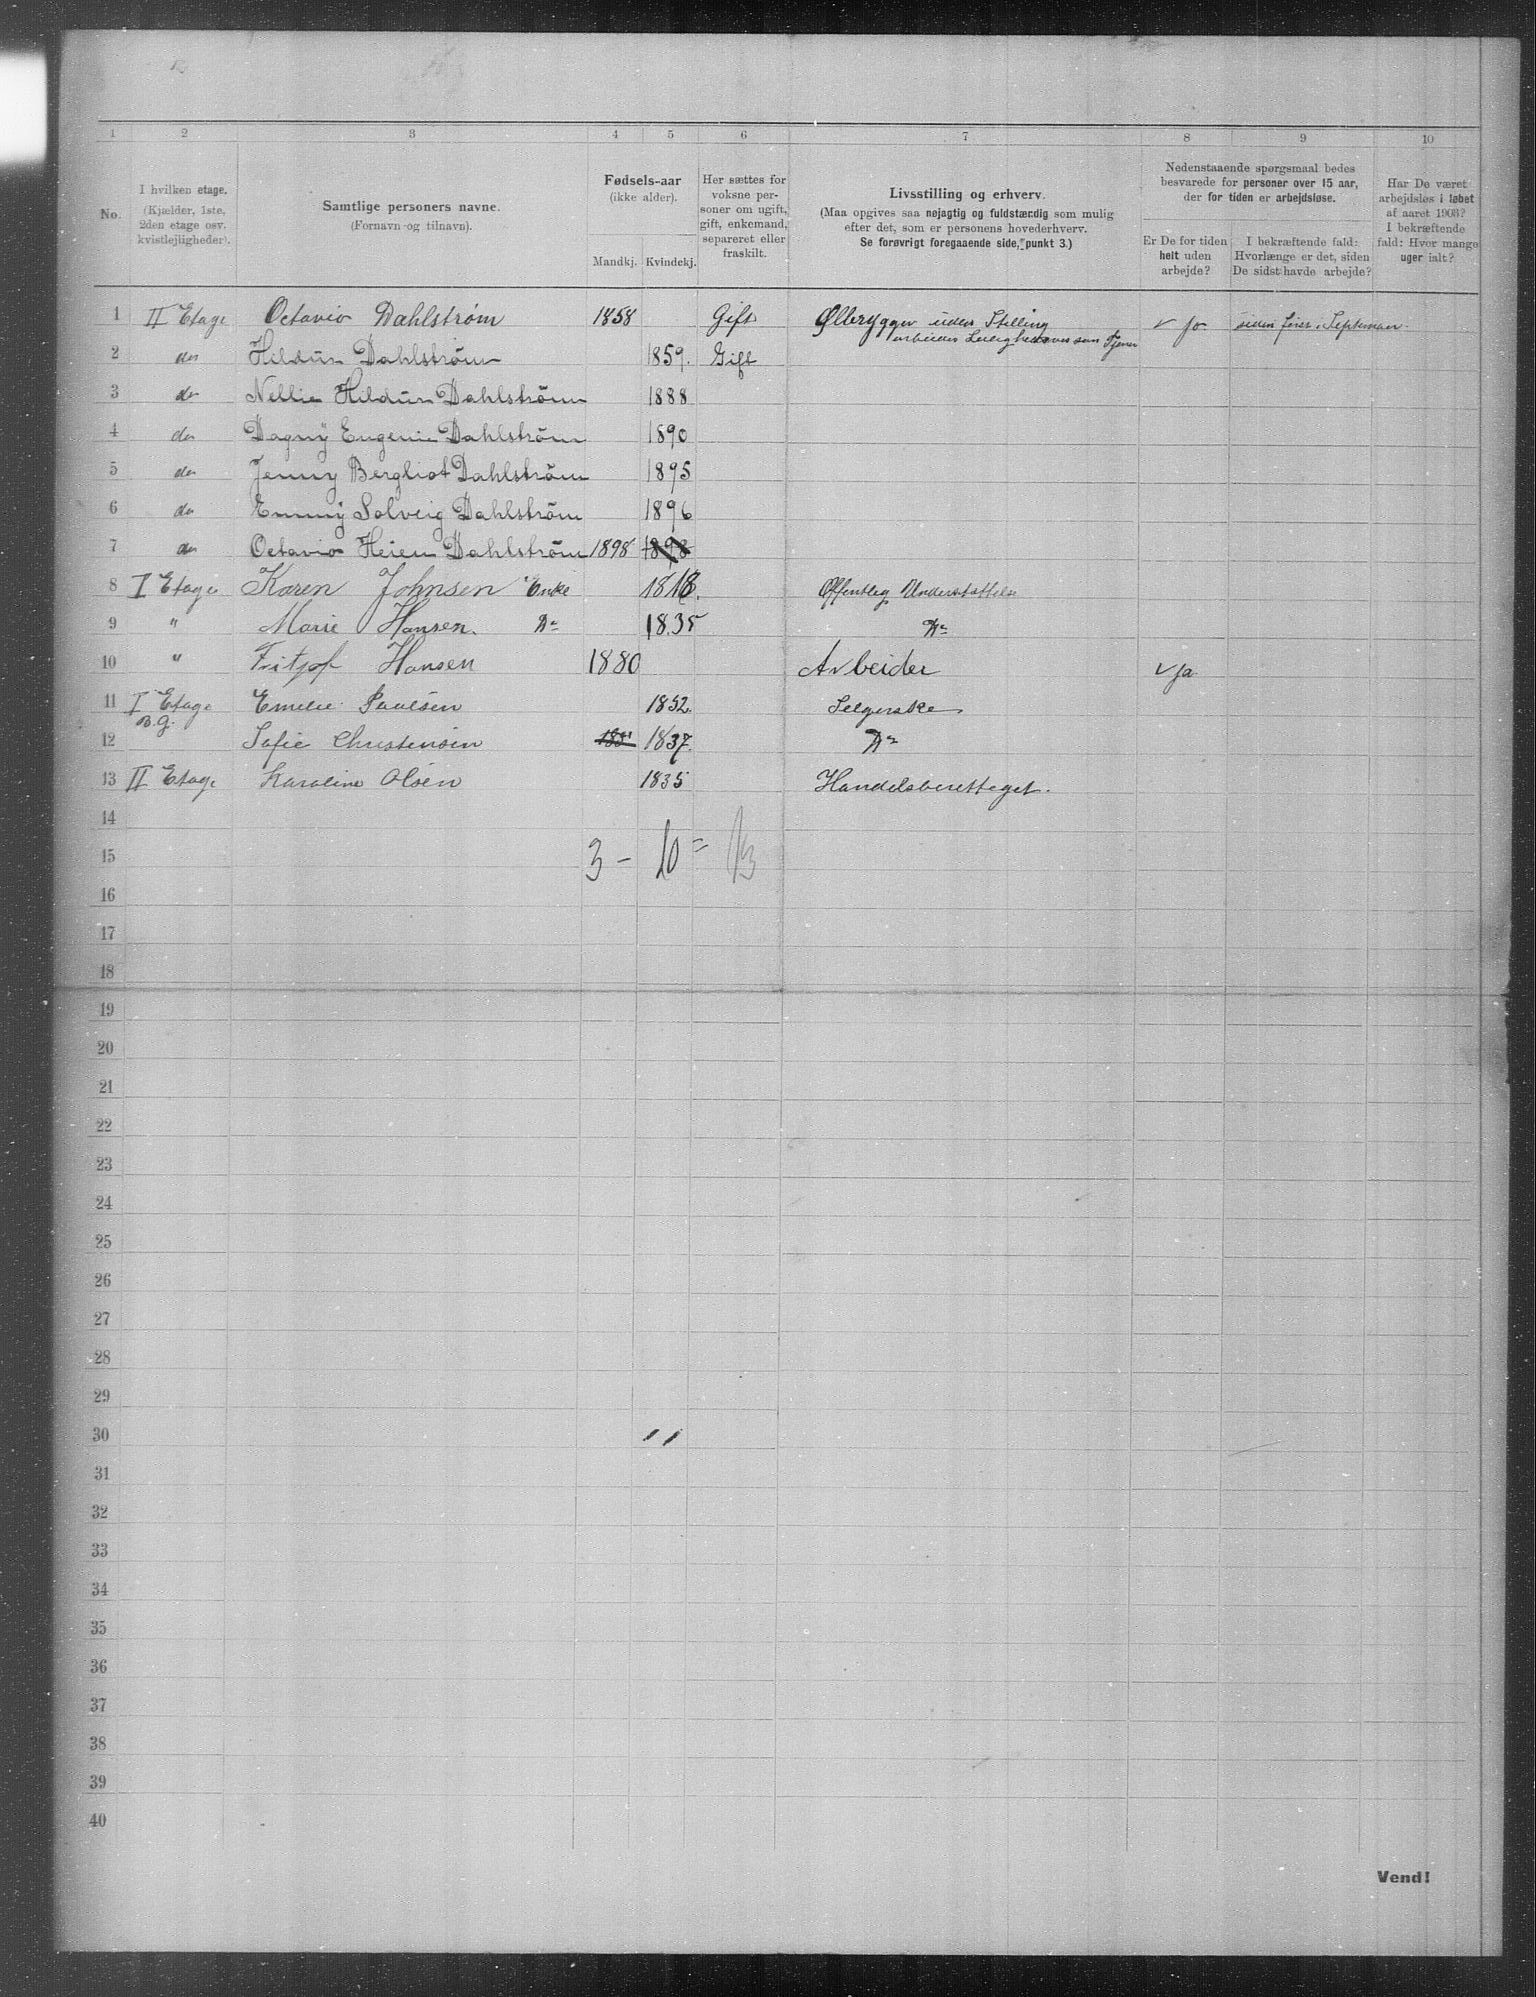 1 2 3 4 5 6 7 8 9 10
No.
I hvilken etage.
(Kjælder, 1ste,
2den etage osv.
kvistlejligheder).
Samtlige personers navne.
(Fornavn og tilnavn).
Fødsels-aar
(ikke alder).
Mandkj. Kvindekj.
Her sættes for
voksne per-
soner om ugift,
gift, enkemand,
separeret eller
fraskilt.
Livsstilling og erhverv.
(Maa opgives saa nøjagtig og fuldstærdig som mulig
efter det, som er personens hovederhverv.
Se forøvrigt foregaaende side, punkt 3.)
Nedenstaaende spørgsmaal bedes
besvarede for personer over 15 aar,
der for tiden er arbejdsløse.
Er De for tiden
helt uden
arbejde?
I bekræftende fald:
Hvorlænge er det, siden
De sidst havde arbejde?
Har De været
arbejdsløs i løbet
af aaret 1903?
I bekræftende
fald: Hvor mange
uger ialt?
1 II Etage Octavio Dahlstrøm 1858 Gift Ølbrygger uden Stilling ✓ Ja siden feier. Septemar.
arbeider som Tjener
2 do Hildur Dahlström 1859. Gift
3 do Nellie Hildur Dahlström 1888
4 do Dagny Eugenie Dahlström 1890
5 do Jenny Bergliot Dahlström 1895
6 do Emmy Solveig Dahlström 1896
7 do Octavio Heien Dahlström 1898 1898
8 I Etage Karen Johnsen Enke 1818. Offentlig Understøttelse
9 " Marie Hansen. Do 1835 Do
10 " Fritjof Hansen 1880 Arbeider ✓ Ja
11 I Etage Emelie Paulsen 1852. Selgerske
B.G.
12 Sofie Christensen 1837. Do
13 II Etage Karoline Olsen 1835 Handelsberettiget.
14
15 3 - 10 = 13
16
17
18
19
20
21
22
23
24
25
26
27
28
29
30
31
32
33
34
35
36
37
38
39
40
Vend!